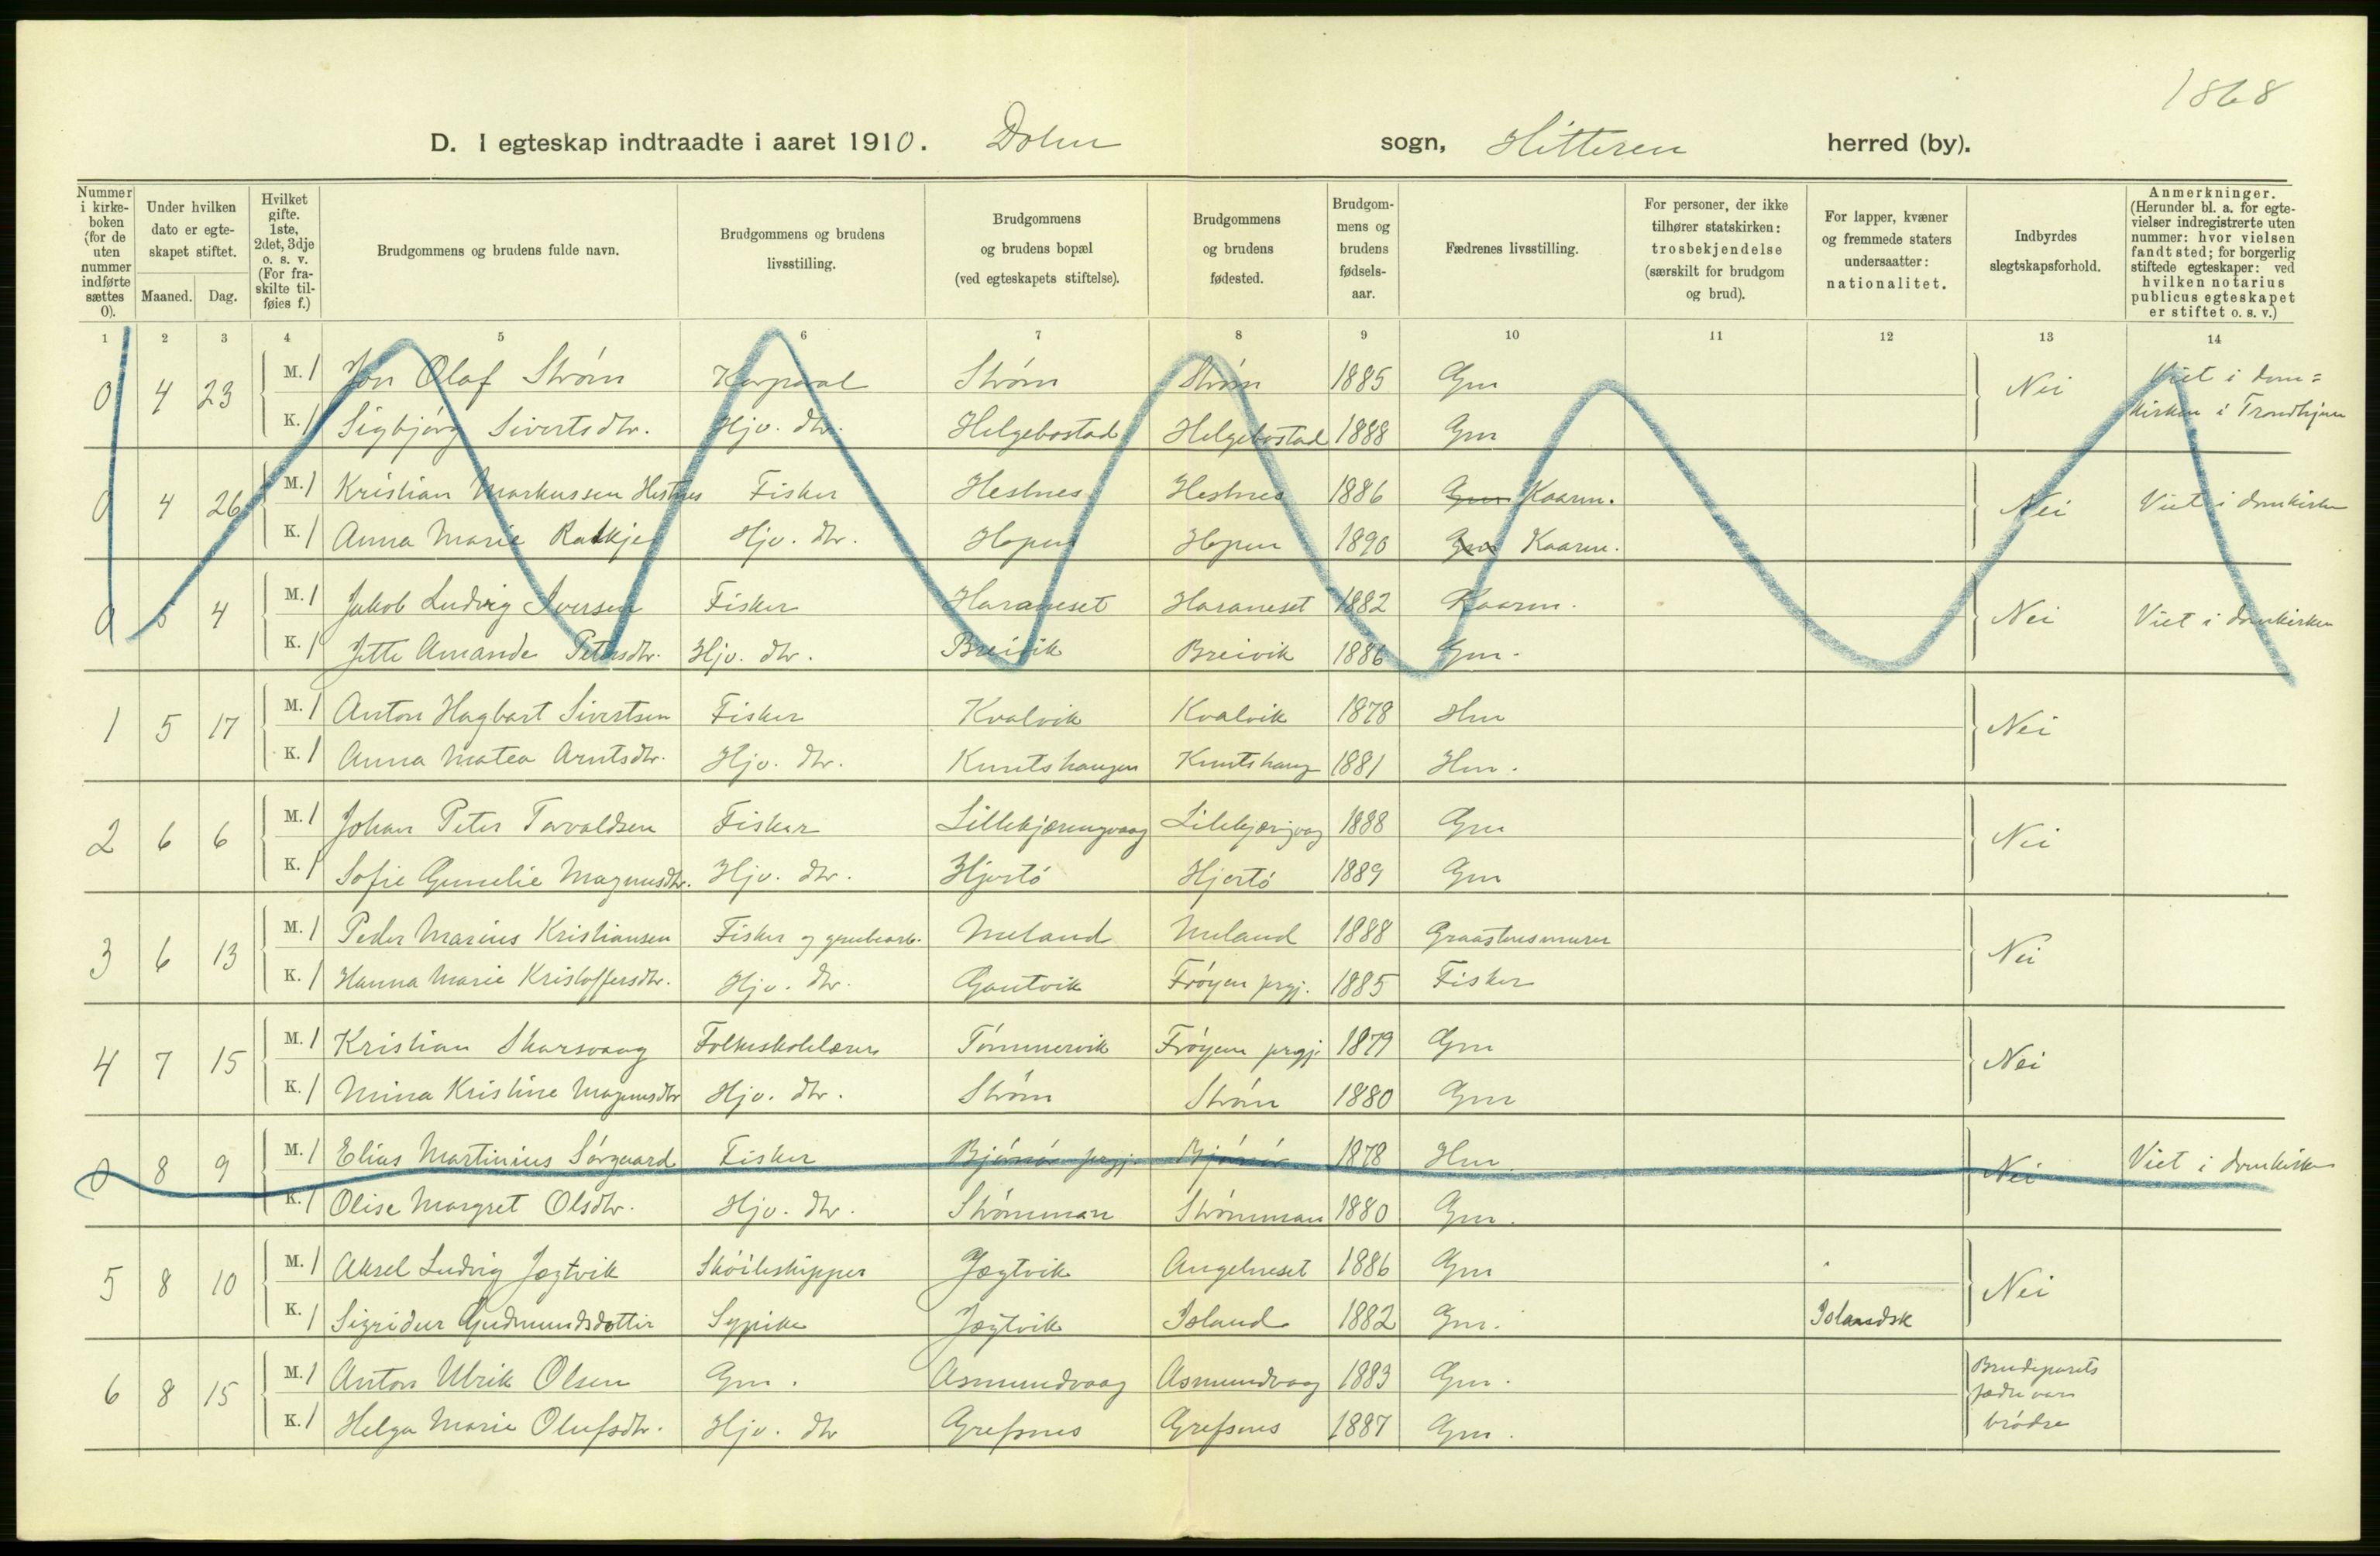 1868
D. I egteskap indtraadte i aaret 1910. Dolm sogn, Hitteren herred (by).
Nummer i kirkeboken (for de uten nummer indførte sættes 0).
Under hvilken dato er egteskapet stiftet.
Maaned. Dag.
Hvilket gifte. 1ste, 2det, 3dje o. s. v. (For fraskilte tilføies f.)
Brudgommens og brudens fulde navn.
Brudgommens og brudens livsstilling.
Brudgommens og brudens bopæl (ved egteskapets stiftelse).
Brudgommens og brudens fødested.
Brudgommens og brudens fødselsaar.
Fædrenes livsstilling.
For personer, der ikke tilhører statskirken: trosbekjendelse (særskilt for brudgom og brud).
For lapper, kvæner og fremmede staters undersaatter: nationalitet.
Indbyrdes slegtskapsforhold.
Anmerkninger. (Herunder bl. a. for egtevielser indregistrerte uten nummer: hvor vielsen fandt sted; for borgerlig stiftede egteskaper: ved hvilken notarius publicus egteskapet er stiftet o. s. v.)
1 2 3 4 5 6 7 8 9 10 11 12 13 14
0 4 23 M. 1 Jon Olaf Strøm Korporal Strøm Strøm 1885 Gm Nei Viet i dom=
K. 1 Sigbjørg Sivertsdtr. Hjv. dtr. Helgebostad Helgebostad 1888 Gm kirken i Trondhjem
0 4 26 M. 1 Kristian Markussen Hestnes Fisker Hestnes Hestnes 1886 Gm Kaarm. Nei Viet i domkirken
K. 1 Anna Marie Hjv. dtr. Hopen Hopen 1890 Gm Kaarm.
0 5 4 M. 1 Jakob Ludvig Iversen Fisker Haraneset Haraneset 1882 Kaarm. Nei Viet i domkirken
K. 1 Jette Amanda Petersdtr. Hjv. dtr. Breivik Breivik 1886 Gm.
1 5 17 M. 1 Anton Hagbart Sivertsen Fisker Kvalvik Kvalvik 1878 Hm Nei
K. 1 Anna Matea Arntsdtr. Hjv. dtr. Kuntshaugen Kuntshaug 1881 Hm.
2 6 6 M. 1 Johan Peter Torvaldsen Fisker Lillekjærringvaag Lillekjærigvag 1888 Gm Nei
K. 1 Sofie Gunelie Magnusdtr. Hjv. dtr. Hjertø Hjertø 1889 Gm
3 6 13 M. 1 Peder Marius Kristiansen Fisker og grubearb. Meland Meland 1888 Graastensmurer Nei
K. 1 Hanna Marie Kristoffersdtr. Hjv. dtr. Gautvik Frøyen prgj. 1885 Fisker
4 7 15 M. 1 Kristian Skarsvaag Folkeskolelærer Tømmervik Frøyen prgj. 1879 Gm Nei
K. 1 Mina Kristine Magnusdtr Hjv. dtr. Strøm Strøm 1880 Gm
0 8 9 M. 1 Elias Martinius Sørgaard Fisker Bjørnør prgj. Bjørnør 1878 Hm. Nei Viet i domkirken
K. 1 Olise Margret Olsdtr. Hjv. dtr. Strømman Strømman 1880 Gm.
5 8 10 M. 1 Aksel Ludvig Jægtvik Skøiteskipper Jægtvik Angelneset 1886 Gm Nei
K. 1 Sigridur Gudmundsdottir Sypike Jægtvik Island 1882 Gm. Islandsk
6 8 15 M. 1 Anton Ulrik Olsen Gm. Asmundvaag Asmundvaag 1883 Gm. Brudeparets fædre var brødre
K. 1 Helga Marie Olufsdtr. Hjv. dtr Grefsnes Grefsnes 1887 Gm.